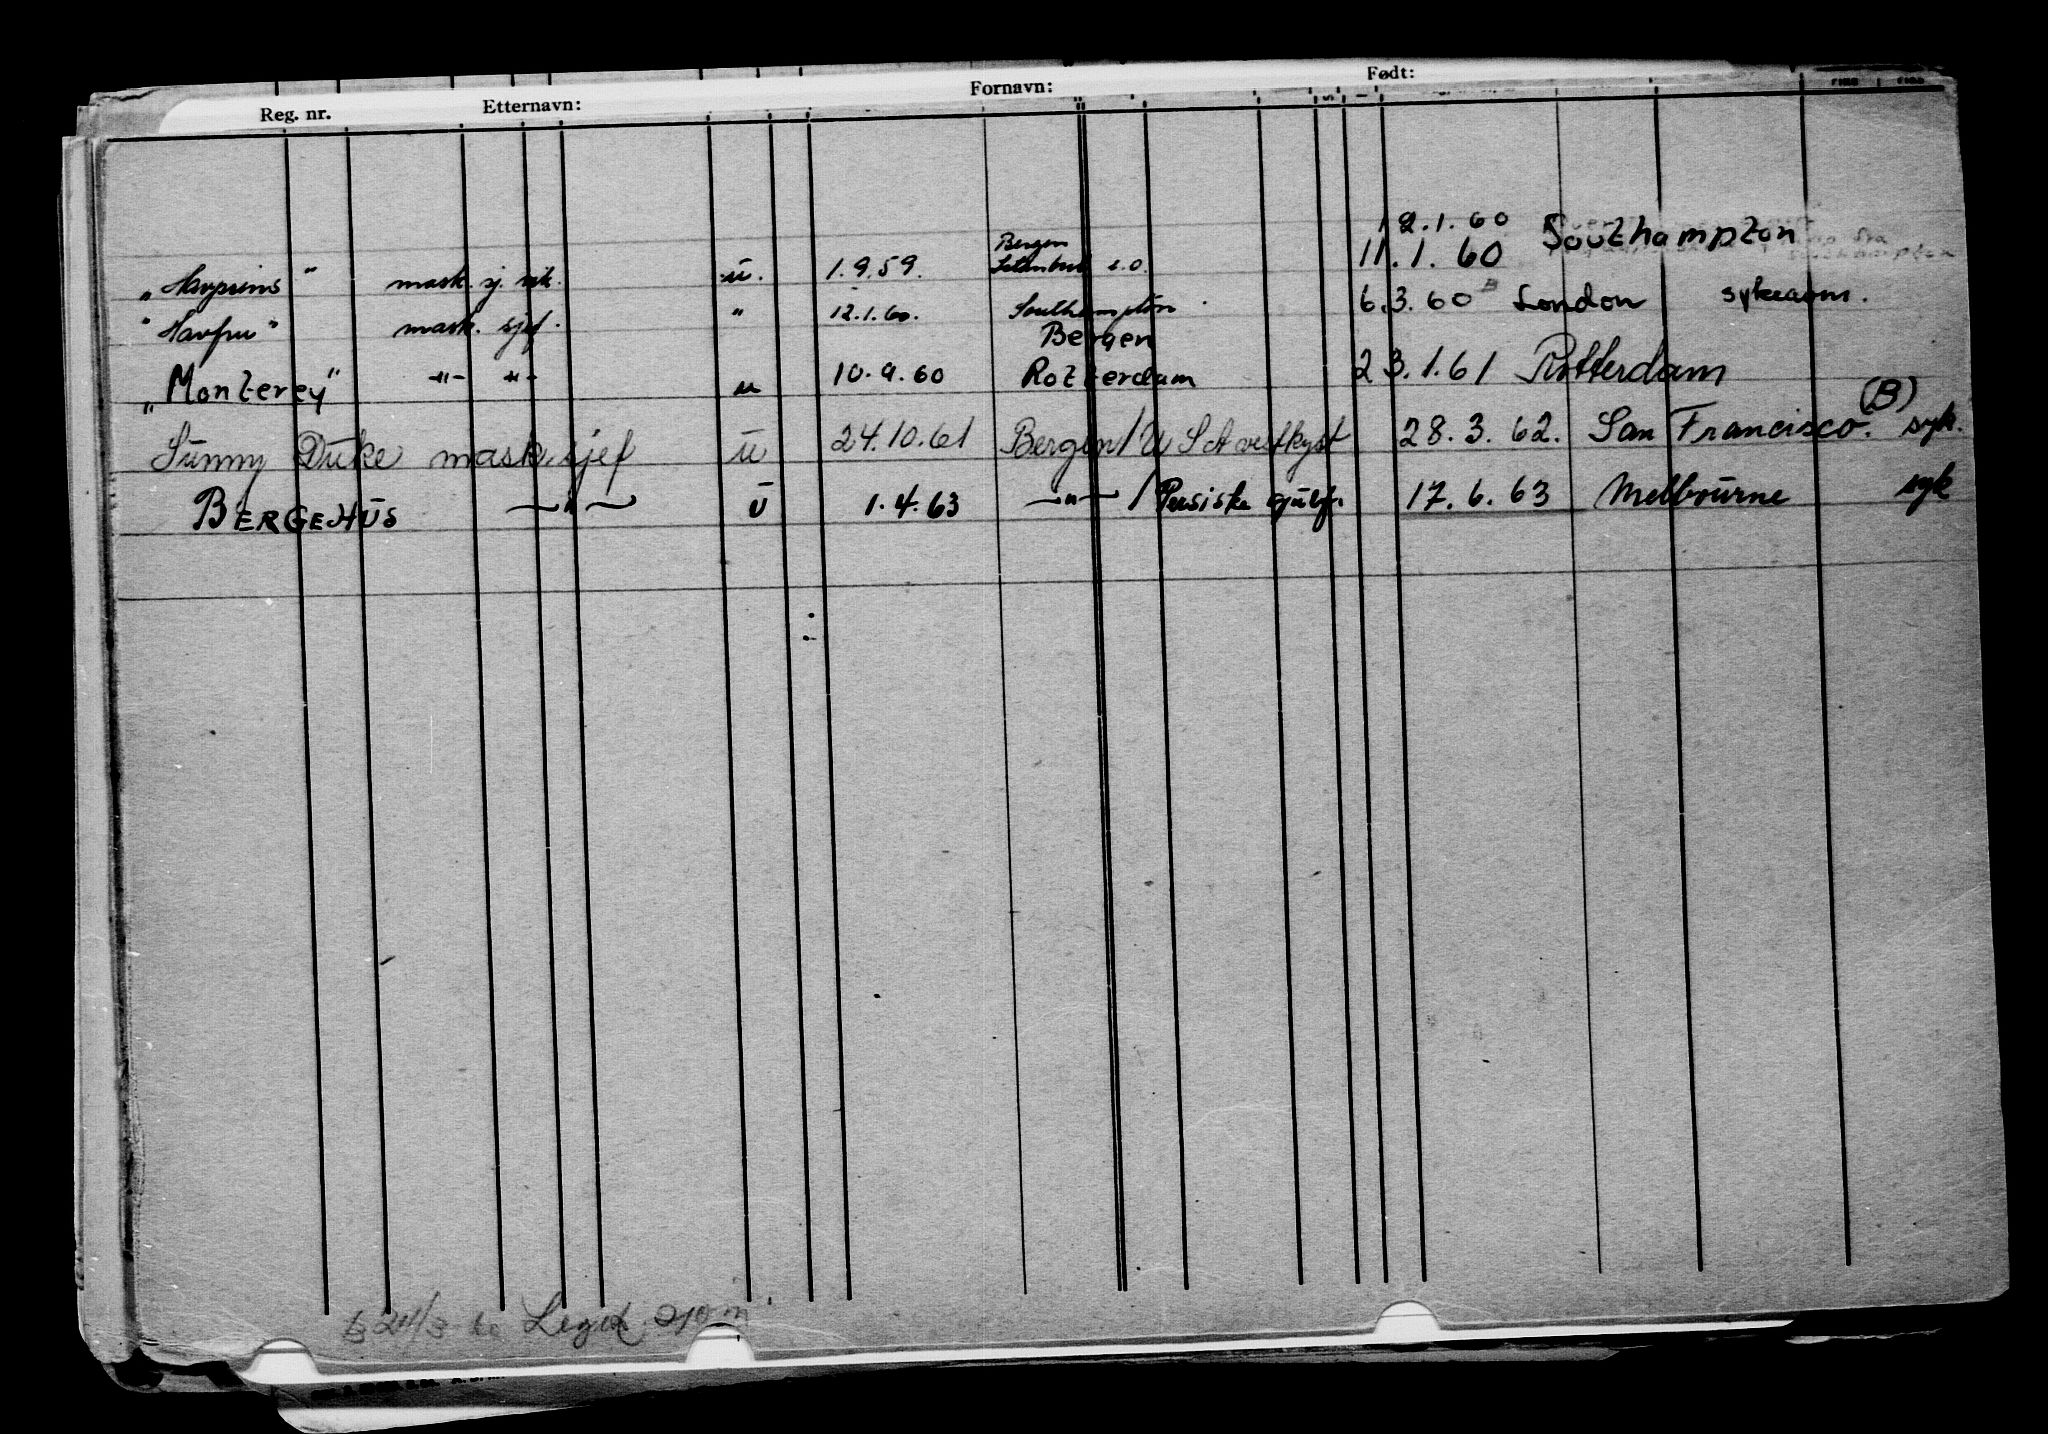 Reg. nr. Etternavn: Fornavn: Født:
12.1.60 Southampton
"Havprins" mask. sj. vik. u. 1.9.59. Bergen Istanbul e.o. 11.1.60
"Havfru" mask. sjef. " 12.1.60. Southampton 6.3.60 London sykeavm.
Bergen
"Monterey" -"- -"- u 10.9.60 Rotterdam 23.1.61 Rotterdam
Sunny Duke mask sjef u 24.10.61 Bergen/U S A vestkyst 28.3.62. San Francisco. (B) syk.
BERGEHUS —"— u 1.4.63 —"—/Persiske gulf. 17.6.63 Melbourne syk